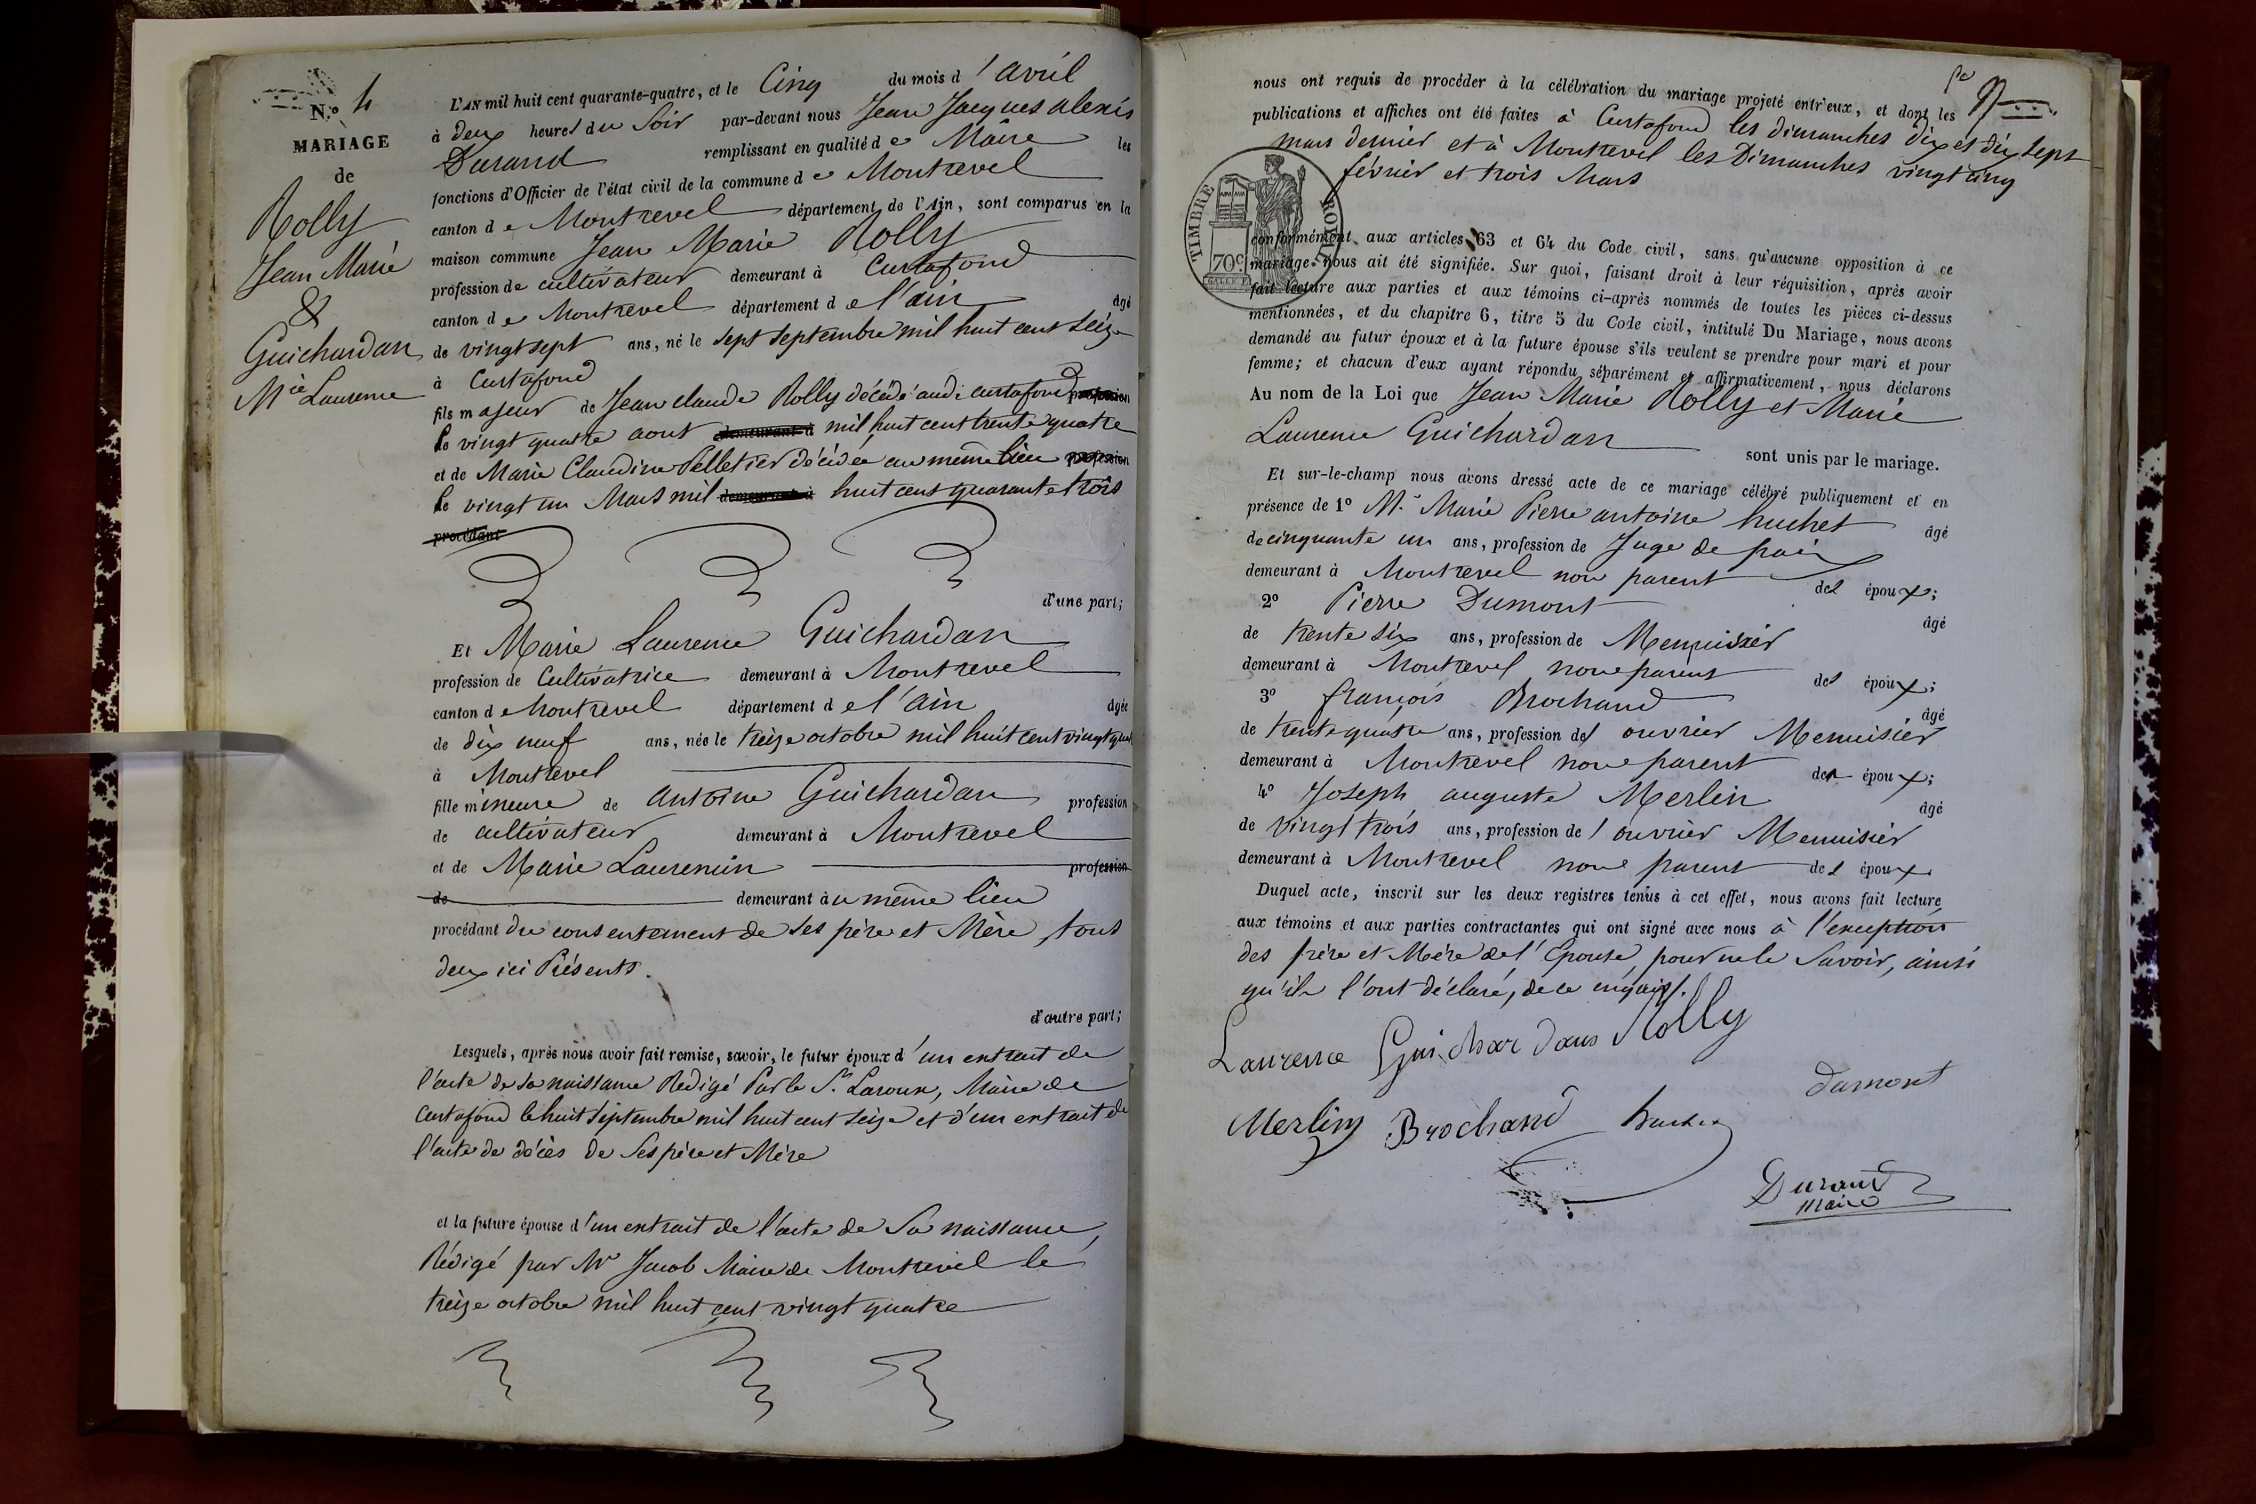 N.º 4
MARIAGE
de
Rolly
Jean Marie
&
Guichardan
Mie Laurence
L'AN mil huit cent quarante-quatre, et le Cinq du mois d'avril
à deux heures du Soir par-devant nous Jean Jacques alexis
Durand remplissant en qualité de Maire les
fonctions d'Officier de l'état civil de la commune de Montrevel
canton de Montrevel département de l'Ain, sont comparus en la
maison commune Jean Marie Rolly
profession de cultivateur demeurant à Curtafond
canton de Montrevel département de l'ain âgé
de vingt sept ans, né le sept septembre mil huit cent seize
à Curtafond
fils majeur de Jean claude Rolly décédé audi curtafond profession
le vingt quatre aout demeurant à mil huit cent trente quatre
et de Marie Claudine Pelletier décédée au même lieu profession
le vingt un Mars mil demeurant à huit cent quarante trois
procédant
d'une part;
Et Marie Laurence Guichardan
profession de Cultivatrice demeurant à Montrevel
canton de Montrevel département de l'ain âgée
de dix neuf ans, née le treize octobre mil huit cent vingt qua
à Montrevel
fille mineure de antoine Guichardan profession
de cultivateur demeurant à Montrevel
et de Marie Laurencin profession
de demeurant au même lieu
procédant du consentement de ses père et Mère, tous
deux ici Présents.
d'autre part;
Lesquels, après nous avoir fait remise, savoir, le futur époux d'un extrait de
l'acte de sa naissance Rédigé Par le Sr. Laroux, Maire de
Curtafond le huit septembre mil huit cent seize et d'un extrait de
l'acte de décès de Ses père et Mère
et la future épouse d'un extrait de l'acte de Sa naissance,
Rédigé par Mr Jacob Maire de Montrevel le
treize octobre mil huit cent vingt quatre
nous ont requis de procéder à la célébration du mariage projeté entr'eux, et dont les
publications et affiches ont été faites à Curtafond les dimanches dix et dix sept
mars dernier et à Montrevel les Dimanches vingt cinq
février et trois Mars
TIMBRE ROYAL
70c
conformément aux articles 63 et 64 du Code civil, sans qu'aucune opposition à ce
mariage nous ait été signifiée. Sur quoi, faisant droit à leur réquisition, après avoir
fait lecture aux parties et aux témoins ci-après nommés de toutes les pièces ci-dessus
mentionnées, et du chapitre 6, titre 5 du Code civil, intitulé Du Mariage, nous avons
demandé au futur époux et à la future épouse s'ils veulent se prendre pour mari et pour
femme; et chacun d'eux ayant répondu séparément et affirmativement, nous déclarons
Au nom de la Loi que Jean Marie Rolly et Marie
Laurence Guichardan
sont unis par le mariage.
Et sur-le-champ nous avons dressé acte de ce mariage célébré publiquement et en
présence de 1º Mr. Marie Pierre antoine huchet âgé
de cinquante un ans, profession de Juge de paix
demeurant à Montrevel non parent des époux;
2º Pierre Dumont âgé
de trente six ans, profession de Menuisier
demeurant à Montrevel non parent des époux;
3º françois Brochand âgé
de trente quatre ans, profession d'ouvrier Menuisier
demeurant à Montrevel non parent des époux;
4º Joseph auguste Merlin âgé
de vingt trois ans, profession de l'ouvrier Menuisier
demeurant à Montrevel non parent des époux
Duquel acte, inscrit sur les deux registres tenus à cet effet, nous avons fait lecture
aux témoins et aux parties contractantes qui ont signé avec nous à l'exception
des père et Mère de l'Epouse, pour ne le Savoir, ainsi
qu'ils l'ont déclaré, de ce enquis.
Laurence Guichardans Rolly
dumont
Merlin Brochand huchet
Durand
maire